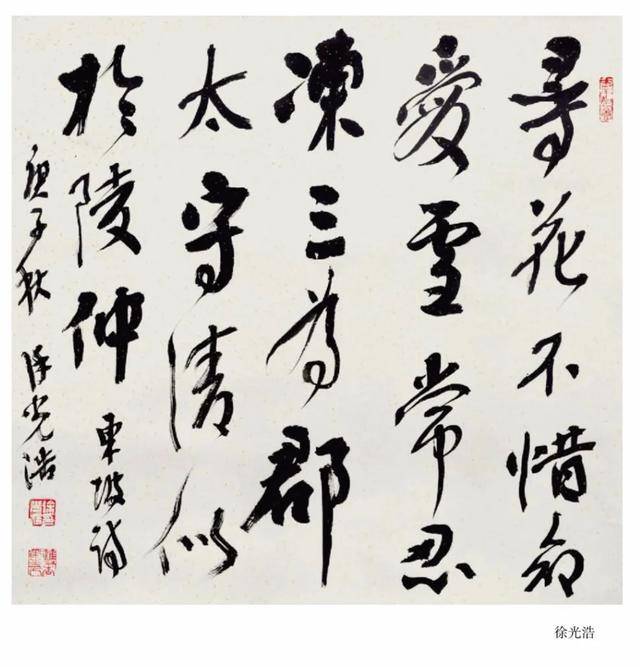 尋花不惜命
愛雪常忍
凍三為郡
太守清似
於陵仲 東坡詩
庚子秋 徐光浩
徐光浩